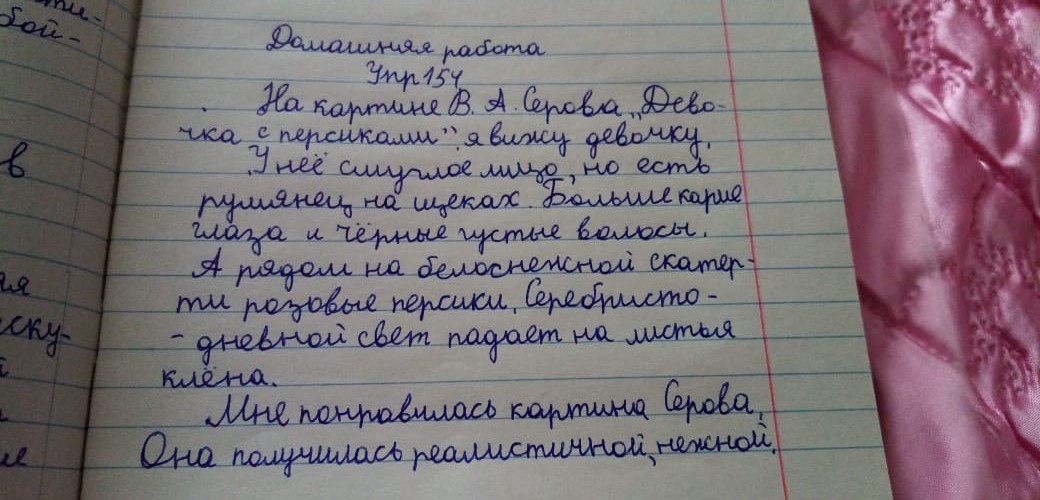 ти-
бой-
в
ая
ску-
й
ие
Домашняя работа
Упр 154
На картине В. А. Серова „Дево-
чка с персиками" я вижу девочку.
У неё смуглое лицо, но есть
румянец на щеках. Больше карие
глаза и чёрные густые волосы.
А рядом на белоснежной скатер-
ти розовые персики. Серебристо-
- дневной свет падает на листья
клёна.
Мне понравилась картина Серова.
Она получилась реалистичной, нежной.